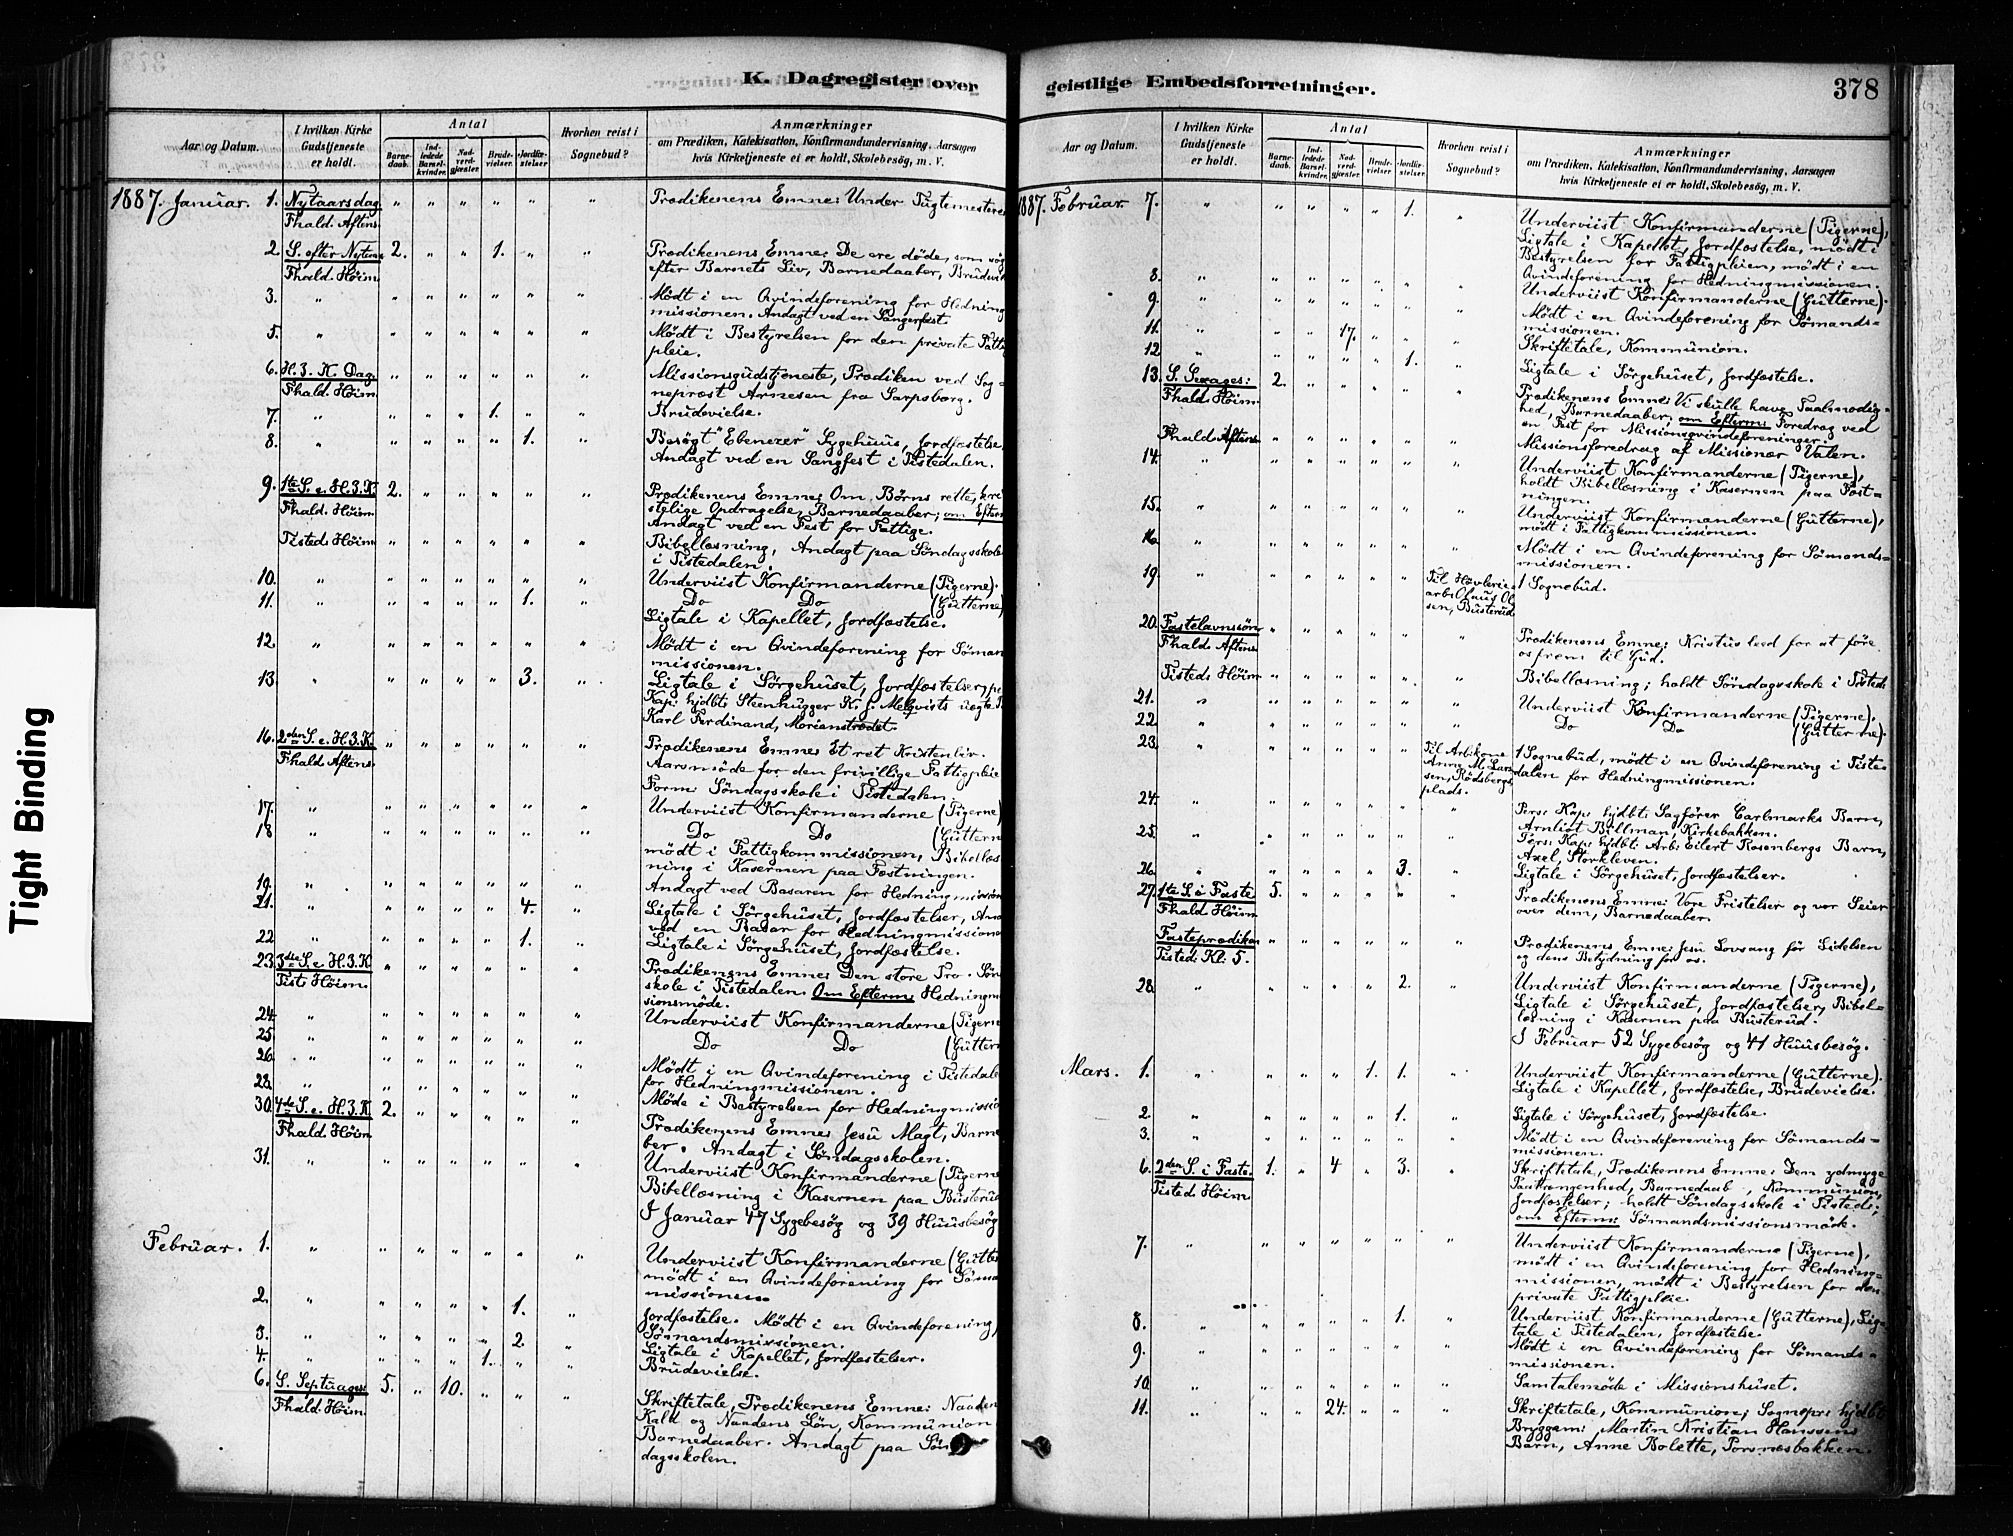 K. Dagregister over
Aar og Datum.
I hvilken Kirke Gudstjeneste er holdt.
Antal
Barnedaab.
Indledede Barselkvinder.
Nadverdgjæster
Brudevielser.
Jordfæstelser
Hvorhen reist i Sognebud?
Anmærkninger
om Prædiken, Katekisation, Konfirmandundervisning, Aarsagen
hvis Kirketjeneste ei er holdt, Skolebesøg, m. V.
1887. Januar. 1. Nytaarsdag " " " " " " Prædikenens Emne: Under Tugtemesteren
Fhald. Aftens.
2. S. efter Nytaar 2. " " 1. " " Prædikenens Emne: De ere døde, som
Fhald. Høim. efter Barnets Liv, Barnedaaber,
3. " " " " " " " Mødt i en Qvindeforening for Hedning
missionen. Andagt ved en Sangerfest.
5. " " " " " " " Mødt i Bestyrelsen for den private
pleie.
6. H. 3. K. Dag. " " " " " " Missionsgudstjeneste, Prædiken ved Sog-
Fhald. Høim. nepræst Arnesen fra Sarpsborg.
7. " " " " 1. " " Brudevielse.
8. " " " " " 1. " Besøgt "Ebenezer" Sygehuus, Jordfæstelse,
Andagt ved en Sangfest i Tistedalen.
9. 1te S. e. H. 3. K. 2. " " " " " Prædikenens Emne: Om Børns rette, kri
Fhald. Høim. stelige Opdragelse, Barnedaaber; om Efterm
Andagt ved en Fest for Fattige.
Tisted: Høim. " " " " " " Bibellæsning, Andagt paa Søndagsskole
i Tistedalen.
10. " " " " " " " Underviist Konfirmanderne (Pigerne).
11. " " " " " 1. " Do Do (Gutterne)
Ligtale i Kapellet, Jordfæstelse.
12. " " " " " " " Mødt i en Qvindeforening for Søman
missionen.
13. " " " " " 3. " Ligtale i Sørgehuset, Jordfæstelser,
Kap: hjdbt: Steenhugger K. J. Melqvists
Karl Ferdinand,
16. 2den S. e. H. 3. K. " " " " " " Prædikenens Emne: Et ret Kristenliv.
Fhald. Aftens. Aarsmøde for den frivillige Fattigpleie
Form: Søndagsskole i Tistedalen.
17. " " " " " " " Underviist Konfirmanderne (Pigerne)
18. " " " " " " " Do Do (Gutterne
mødt i Fattigkommissionen, Bibellæs
ning i Kasernen paa Fæstningen.
19. " " " " " " " Andagt ved Basaren for Hedningmission
21. " " " " " 4. " Ligtale i Sørgehuset, Jordfæstelser, And
ved en Basar for Hedningmission
22. " " " " " 1. " Ligtale i Sørgehuset, Jordfæstelse.
23. 3die S. e. H. 3. K. " " " " " " Prædikenens Emne: Den store Tro. Søn
Tist: Høim. skole i Tistedalen. Om Efterm: Hedningm
sionsmøde.
24. " " " " " " " Underviist Konfirmanderne (Pigerne
25. " " " " " " " Do Do (Guttern
26. " " " " " " " Mødt i en Qvindeforening i Tistedale
for Hedningmissionen.
28. " " " " " " " Møde i Bestyrelsen for Hedningmissio
30. 4de S. e. H. 3. K. 2. " " " " " Prædikenens Emne: Jesu Magt, Barne
Fhald. Høim. ber. Andagt i Søndagsskolen.
31. " " " " " " " Underviist Konfirmanderne (Pigerne
Bibellæsning i Kasernen paa Busterud
I Januar 47 Sygebesøg og 39 Huusbesøg
Februar. 1. " " " " " " " Underviist Konfirmanderne (Gutter
mødt i en Qvindeforening for Sømand
missionen.
2. " " " " " 1. " Jordfæstelse. Mødt i en Qvindeforening
Sømandsmissionen.
3. " " " " " 2. " Ligtale i Kapellet, Jordfæstelser.
4. " " " " 1. " " Brudevielse.
6. S. Septuages: 5. " 10. " " " Skriftetale, Prædikenens Emne: Naaden
Fhald. Høim. Kald og Naadens Løn, Kommunion
Barnedaaber. Andagt paa Søn
dagsskolen.
geistlige Embedsforretninger.
378
Aar og Datum.
I hvilken Kirke Gudstjeneste er holdt.
Antal
Barnedaab.
Indledede Barselkvinder.
Nadverdgjæster
Brudevielser
Jordfæstelser.
Hvorhen reist i Sognebud?
Anmærkninger
om Prædiken, Katekisation, Konfirmandundervisning, Aarsagen
hvis Kirketjeneste ei er holdt, Skolebesøg, m. V.
1887. Februar. 7. " " " " " 1. " Underviist Konfirmanderne (Pigerne),
Ligtale i Kapellet, Jordfæstelse, mødt i
Bestyrelsen for Fattigpleien, mødt i en
Qvindeforening for Hedningmissionen.
8. " " " " " " " Underviist Konfirmanderne (Gutterne).
9. " " " " " " " Mødt i en Qvindeforening for Sømands-
missionen.
11. " " " 17. " " " Skriftetale, Kommunion.
12. " " " " " 1. " Ligtale i Sørgehuset, Jordfæstelse.
13. S. Sexages: 2. " " " " " Prædikenens Emne: Vi skulle have Taalmodig-
Fhald. Høim. hed, Barnedaaber, om Efterm: Foredrag ved
en Fest for Missionsqvindeforeninger.
Fhald. Aftens. " " " " " " Missionsforedrag af Missionær Valen.
14. " " " " " " " Underviist Konfirmanderne (Pigerne),
holdt Bibellæsning i Kasernen paa Fæst-
ningen.
15. " " " " " " " Underviist Konfirmanderne (Gutterne),
mødt i Fattigkommissionen.
16. " " " " " " " Mødt i en Qvindeforening for Sømands-
missionen.
19. " " " " " " Til Høvleri-
arb: Olaus Ol
sen, Busterud 1 Sognebud.
20. Fastelavnssøn " " " " " " Prædikenens Emne: Kristus leed for at føre
Fhald. Aftens. os frem til Gud.
Tisted: Høim. " " " " " " Bibellæsning; holdt Søndagsskole i Tisted:
21. " " " " " " " Underviist Konfirmanderne (Pigerne).
22. " " " " " " " Do Do (Gutterne).
23. " " " " " " Til Arb:kone
Anne M. Lar
sen, Rødsberg
plads. 1 Sognebud, mødt i en Qvindeforening i Tiste-
dalen for Hedningmissionen.
24. " " " " " " " Pers: Kap: hjdbt: Sagfører Carlsmarks Barn,
Arnliot Billman, Kirkebakken.
25. " " " " " " " Pers: Kap: hjdbt: Arb: Eilert Rosenbergs Barn,
Axel, Storkleven.
26. " " " " " 3. " Ligtale i Sørgehuset, Jordfæstelser.
27. 1te S. i Faste 5. " " " " " Prædikenens Emne: Vore Fristelser og vor Seier
Fhald. Høim. over dem, Barnedaaber.
Fasteprædiken " " " " " " Prædikenens Emne: Jesu Lovsang før Lidelsen
Tisted: Kl: 5. og dens Betydning for os.
28. " " " " " 2. " Underviist Konfirmanderne (Pigerne),
Ligtale i Sørgehuset, Jordfæstelser, Bibel-
læsning i Kasernen paa Busterud.
I Februar 52 Sygebesøg og 41 Huusbesøg.
Mars. 1. " " " " 1. 1. " Underviist Konfirmanderne (Gutterne).
Ligtale i Kapellet, Jordfæstelse, Brudevielse.
2. " " " " " 1. " Ligtale i Sørgehuset, Jordfæstelse.
3. " " " " " " " Mødt i en Qvindeforening for Sømands-
missionen.
6. 2den S. i Faste. 1. " 4 " 3. " Skriftetale, Prædikenens Emne: Den ydmyge
Tisted: Høim. Paatrængenhed, Barnedaab, Kommunion,
Jordfæstelser; holdt Søndagsskole i Tisted;
om Efterm: Sømandsmissionsmøde.
7. " " " " " " " Underviist Konfirmanderne (Pigerne),
mødt i en Qvindeforening for Hedning-
missionen, mødt i Bestyrelsen for den
private Fattigpleie.
8. " " " " " 1. " Underviist Konfirmanderne (Gutterne), Lig-
tale i Tistedalen, Jordfæstelse.
9. " " " " " " " Mødt i en Qvindeforening for Sømands-
missionen.
10. " " " " " " " Samtalemøde i Missionshuset.
11. " " " 24. " " " Skriftetale, Kommunion; Sognepr: hjdbt
Bryggem: Martin Kristian Hanssens
Barn, Anne Bolette, Porsnæsbakken.
Tight Binding